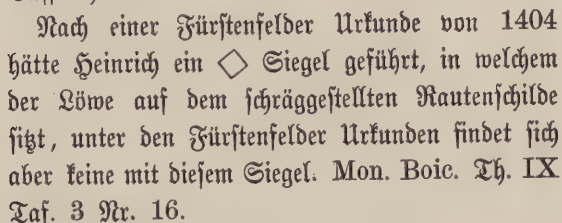 Nach einer Fürstenfelder Urkunde von 1404
hätte Heinrich ein ◇ Siegel geführt, in welchem
der Löwe auf dem schräggestellten Rautenschilde
sitzt, unter den Fürstenfelder Urkunden findet sich
aber keine mit diesem Siegel. Mon. Boic. Th. IX
Taf. 3 Nr. 16.